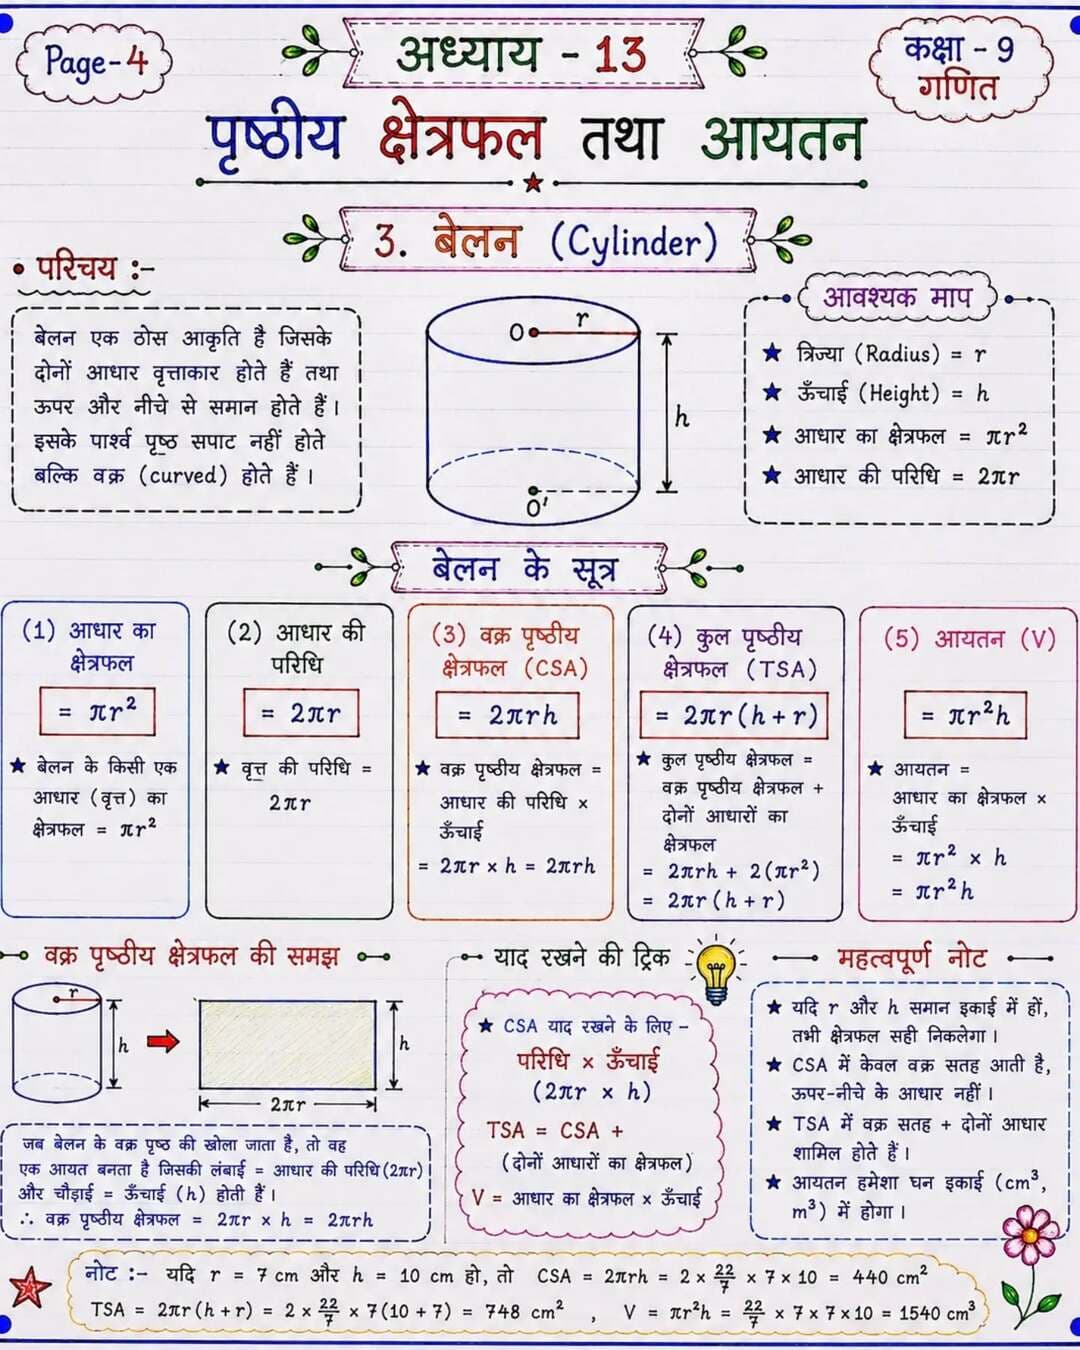 Page-4
अध्याय - 13
कक्षा - 9
गणित
पृष्ठीय क्षेत्रफल तथा आयतन
3. बेलन (Cylinder)
• परिचय :-
बेलन एक ठोस आकृति है जिसके
दोनों आधार वृत्ताकार होते हैं तथा
ऊपर और नीचे से समान होते हैं।
इसके पार्श्व पृष्ठ सपाट नहीं होते
बल्कि वक्र (curved) होते हैं।
O r
h
O'
आवश्यक माप
★ त्रिज्या (Radius) = r
★ ऊँचाई (Height) = h
★ आधार का क्षेत्रफल = πr²
★ आधार की परिधि = 2πr
बेलन के सूत्र
(1) आधार का
क्षेत्रफल
= πr²
★ बेलन के किसी एक
आधार (वृत्त) का
क्षेत्रफल = πr²
(2) आधार की
परिधि
= 2πr
★ वृत्त की परिधि =
2πr
(3) वक्र पृष्ठीय
क्षेत्रफल (CSA)
= 2πrh
★ वक्र पृष्ठीय क्षेत्रफल =
आधार की परिधि ×
ऊँचाई
= 2πr × h = 2πrh
(4) कुल पृष्ठीय
क्षेत्रफल (TSA)
= 2πr(h + r)
★ कुल पृष्ठीय क्षेत्रफल =
वक्र पृष्ठीय क्षेत्रफल +
दोनों आधारों का
क्षेत्रफल
= 2πrh + 2(πr²)
= 2πr(h + r)
(5) आयतन (V)
= πr²h
★ आयतन =
आधार का क्षेत्रफल ×
ऊँचाई
= πr² × h
= πr²h
वक्र पृष्ठीय क्षेत्रफल की समझ
r
h
h
2πr
जब बेलन के वक्र पृष्ठ की खोला जाता है, तो वह
एक आयत बनता है जिसकी लंबाई = आधार की परिधि(2πr)
और चौड़ाई = ऊँचाई (h) होती हैं।
∴ वक्र पृष्ठीय क्षेत्रफल = 2πr × h = 2πrh
याद रखने की ट्रिक
★ CSA याद रखने के लिए -
परिधि × ऊँचाई
(2πr × h)
TSA = CSA +
(दोनों आधारों का क्षेत्रफल)
V = आधार का क्षेत्रफल × ऊँचाई
महत्वपूर्ण नोट
★ यदि r और h समान इकाई में हों,
तभी क्षेत्रफल सही निकलेगा।
★ CSA में केवल वक्र सतह आती है,
ऊपर-नीचे के आधार नहीं।
★ TSA में वक्र सतह + दोनों आधार
शामिल होते हैं।
★ आयतन हमेशा घन इकाई (cm³,
m³) में होगा।
नोट :- यदि r = 7 cm और h = 10 cm हो, तो CSA = 2πrh = 2 × 22/7 × 7 × 10 = 440 cm²
TSA = 2πr(h + r) = 2 × 22/7 × 7(10 + 7) = 748 cm² , V = πr²h = 22/7 × 7 × 7 × 10 = 1540 cm³